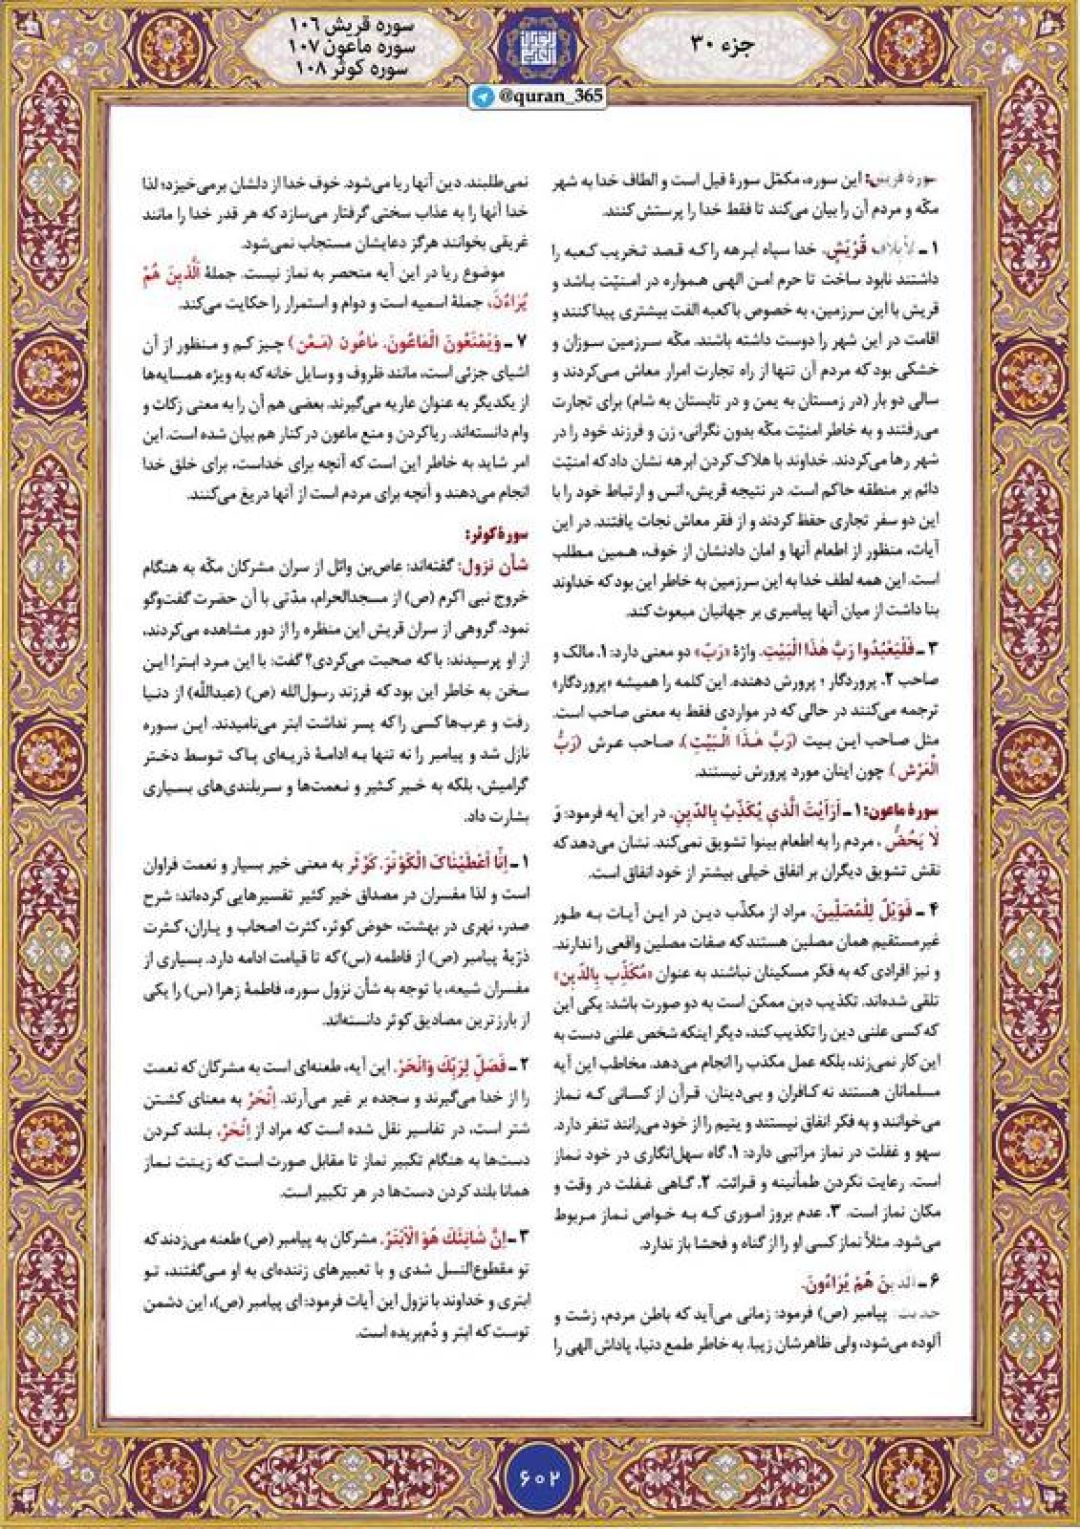 جزء ۳۰
سوره قریش ۱۰۶
سوره ماعون ۱۰۷
سوره کوثر ۱۰۸
@quran_365
سورهٔ قریش: این سوره، مکمّل سورهٔ فیل است و الطاف خدا به شهر
مکّه و مردم آن را بیان می‌کند تا فقط خدا را پرستش کنند.
۱ـ لِأیلافِ قُرَیْشٍ. خدا سپاه ابرهه را که قصد تخریب کعبه را
داشتند نابود ساخت تا حرم امن الهی همواره در امنیّت باشد و
قریش با این سرزمین، به خصوص با کعبه الفت بیشتری پیدا کنند و
اقامت در این شهر را دوست داشته باشند. مکّه سرزمین سوزان و
خشکی بود که مردم آن تنها از راه تجارت امرار معاش می‌کردند و
سالی دو بار (در زمستان به یمن و در تابستان به شام) برای تجارت
می‌رفتند و به خاطر امنیّت مکّه بدون نگرانی، زن و فرزند خود را در
شهر رها می‌کردند. خداوند با هلاک کردن ابرهه نشان داد که امنیّت
دائم بر منطقه حاکم است. در نتیجه قریش، انس و ارتباط خود را با
این دو سفر تجاری حفظ کردند و از فقر معاش نجات یافتند. در این
آیات، منظور از اطعام آنها و امان دادنشان از خوف، همین مطلب
است. این همه لطف خدا به این سرزمین به خاطر این بود که خداوند
بنا داشت از میان آنها پیامبری بر جهانیان مبعوث کند.
۳ـ فَلْیَعْبُدُوا رَبَّ هٰذَا الْبَیْتِ. واژهٔ «رَبّ» دو معنی دارد: ۱. مالک و
صاحب ۲. پروردگار؛ پرورش دهنده. این کلمه را همیشه «پروردگار»
ترجمه می‌کنند در حالی که در مواردی فقط به معنی صاحب است.
مثل صاحب این بیت (رَبَّ هٰذَا الْبَیْتِ)، صاحب عرش (رَبُّ
الْعَرْشِ) چون اینان مورد پرورش نیستند.
سورهٔ ماعون: ۱ـ أَرَأَیْتَ الَّذی یُکَذِّبُ بِالدّینِ. در این آیه فرمود: وَ
لَا یَحُضُّ، مردم را به اطعام بینوا تشویق نمی‌کند. نشان می‌دهد که
نقش تشویق دیگران بر انفاق خیلی بیشتر از خود انفاق است.
۴ـ فَوَیْلٌ لِلْمُصَلّینَ. مراد از مکذّب دین در این آیات به طور
غیرمستقیم همان مصلین هستند که صفات مصلین واقعی را ندارند.
و نیز افرادی که به فکر مسکینان نباشند به عنوان «مُکَذِّبِ بِالدّینِ»
تلقی شده‌اند. تکذیب دین ممکن است به دو صورت باشد: یکی این
که کسی علنی دین را تکذیب کند، دیگر اینکه شخص علنی دست به
این کار نمی‌زند، بلکه عمل مکذب را انجام می‌دهد. مخاطب این آیه
مسلمانان هستند نه کافران و بی‌دینان. قرآن از کسانی که نماز
می‌خوانند و به فکر انفاق نیستند و یتیم را از خود می‌رانند تنفر دارد.
سهو و غفلت در نماز مراتبی دارد: ۱. گاه سهل‌انگاری در خود نماز
است. رعایت نکردن طمأنینه و قرائت. ۲. گاهی غفلت در وقت و
مکان نماز است. ۳. عدم بروز اموری که به خواص نماز مربوط
می‌شود. مثلاً نماز کسی او را از گناه و فحشا باز ندارد.
۶ـ الَّذینَ هُمْ یُرَاءُونَ.
حدیث: پیامبر (ص) فرمود: زمانی می‌آید که باطن مردم، زشت و
آلوده می‌شود، ولی ظاهرشان زیبا. به خاطر طمع دنیا، پاداش الهی را
نمی‌طلبند. دین آنها ریا می‌شود. خوف خدا از دلشان برمی‌خیزد؛ لذا
خدا آنها را به عذاب سختی گرفتار می‌سازد که هر قدر خدا را مانند
غریقی بخوانند هرگز دعایشان مستجاب نمی‌شود.
موضوع ریا در این آیه منحصر به نماز نیست. جملهٔ الَّذینَ هُمْ
یُرَاءُونَ، جملهٔ اسمیه است و دوام و استمرار را حکایت می‌کند.
۷ـ وَیَمْنَعُونَ الْمَاعُونَ. مَاعُون (مَعْن) چیز کم و منظور از آن
اشیای جزئی است، مانند ظروف و وسایل خانه که به ویژه همسایه‌ها
از یکدیگر به عنوان عاریه می‌گیرند. بعضی هم آن را به معنی زکات و
وام دانسته‌اند. ریاکردن و منع ماعون در کنار هم بیان شده است. این
امر شاید به خاطر این است که آنچه برای خداست، برای خلق خدا
انجام می‌دهند و آنچه برای مردم است از آنها دریغ می‌کنند.
سورهٔ کوثر:
شأن نزول: گفته‌اند: عاص‌بن وائل از سران مشرکان مکّه به هنگام
خروج نبی اکرم (ص) از مسجدالحرام، مدّتی با آن حضرت گفت‌وگو
نمود. گروهی از سران قریش این منظره را از دور مشاهده می‌کردند،
از او پرسیدند: با که صحبت می‌کردی؟ گفت: با این مرد ابتر! این
سخن به خاطر این بود که فرزند رسول‌الله (ص) (عبدالله) از دنیا
رفت و عرب‌ها کسی را که پسر نداشت ابتر می‌نامیدند. این سوره
نازل شد و پیامبر را نه تنها به ادامهٔ ذریه‌ای پاک توسط دختر
گرامیش، بلکه به خیر کثیر و نعمت‌ها و سربلندی‌های بسیاری
بشارت داد.
۱ـ إِنّا أَعْطَیْنَاکَ الْکَوْثَرَ. کَوْثَر به معنی خیر بسیار و نعمت فراوان
است و لذا مفسران در مصداق خیر کثیر تفسیرهایی کرده‌اند: شرح
صدر، نهری در بهشت، حوض کوثر، کثرت اصحاب و یاران، کثرت
ذرّیهٔ پیامبر (ص) از فاطمه (س) که تا قیامت ادامه دارد. بسیاری از
مفسران شیعه، با توجه به شأن نزول سوره، فاطمهٔ زهرا (س) را یکی
از بارزترین مصادیق کوثر دانسته‌اند.
۲ـ فَصَلِّ لِرَبِّکَ وَانْحَرْ. این آیه، طعنه‌ای است به مشرکان که نعمت
را از خدا می‌گیرند و سجده بر غیر می‌آرند. اِنْحَرْ به معنای کشتن
شتر است، در تفاسیر نقل شده است که مراد از اِنْحَرْ، بلند کردن
دست‌ها به هنگام تکبیر نماز تا مقابل صورت است که زینت نماز
همانا بلند کردن دست‌ها در هر تکبیر است.
۳ـ إِنَّ شَانِئَکَ هُوَ الْأَبْتَرُ. مشرکان به پیامبر (ص) طعنه می‌زدند که
تو مقطوع‌النسل شدی و با تعبیرهای زننده‌ای به او می‌گفتند، تو
ابتری و خداوند با نزول این آیات فرمود: ای پیامبر (ص)، این دشمن
توست که ابتر و دُم‌بریده است.
۶۰۲